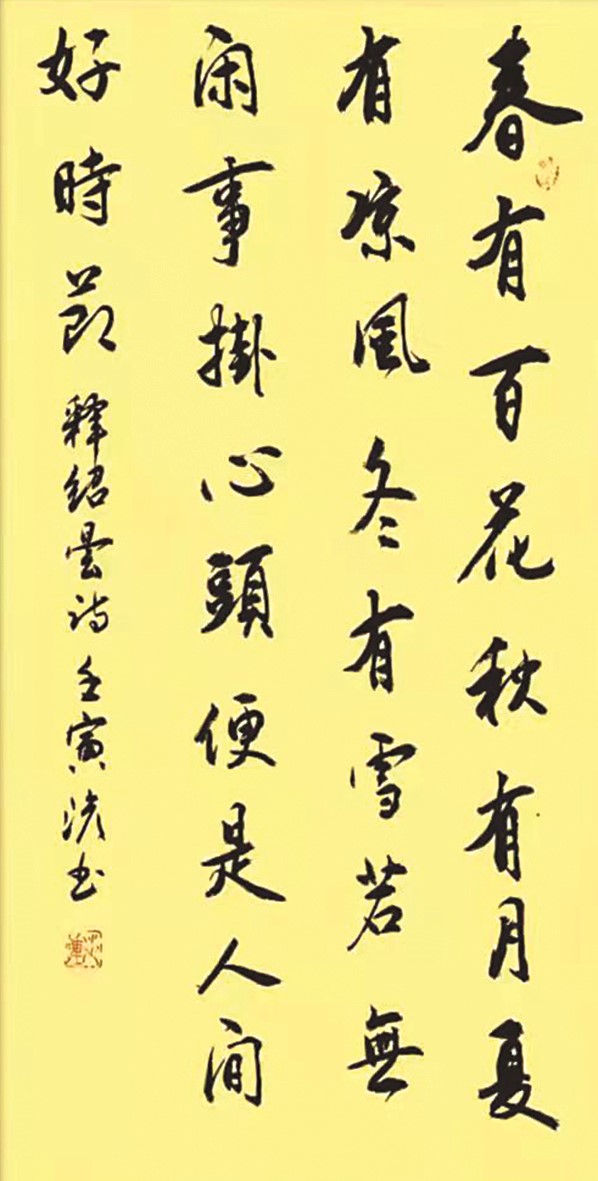 春有百花秋有月夏
有凉風冬有雪若無
闲事掛心頭便是人间
好時節 释紹曇诗 壬寅 书